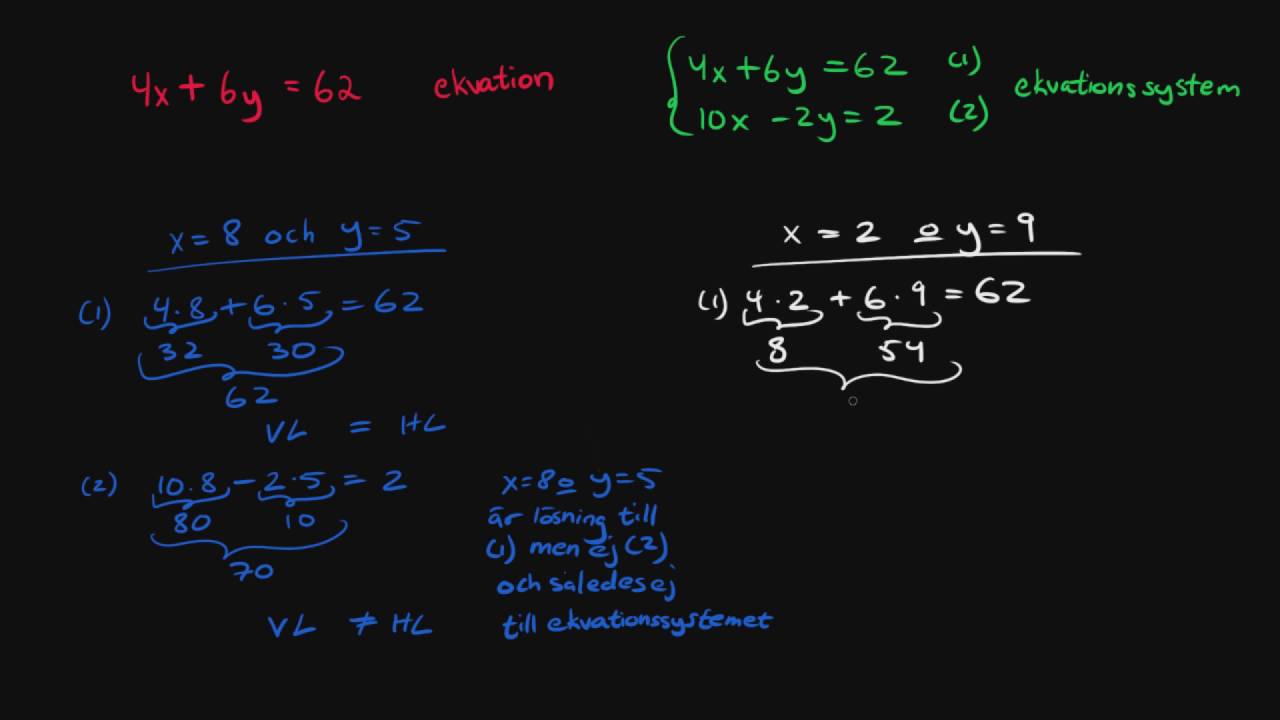 4x + 6y = 62 ekvation
4x + 6y = 62 (1)
10x - 2y = 2 (2)
ekvationssystem
x = 8 och y = 5
(1) 4·8 + 6·5 = 62
32 30
62
VL = HL
(2) 10·8 - 2·5 = 2
80 10
70
VL ≠ HL
x=8 o y=5
är lösning till
(1) men ej (2)
och således ej
till ekvationssystemet
x = 2 o y = 9
(1) 4·2 + 6·9 = 62
8 54